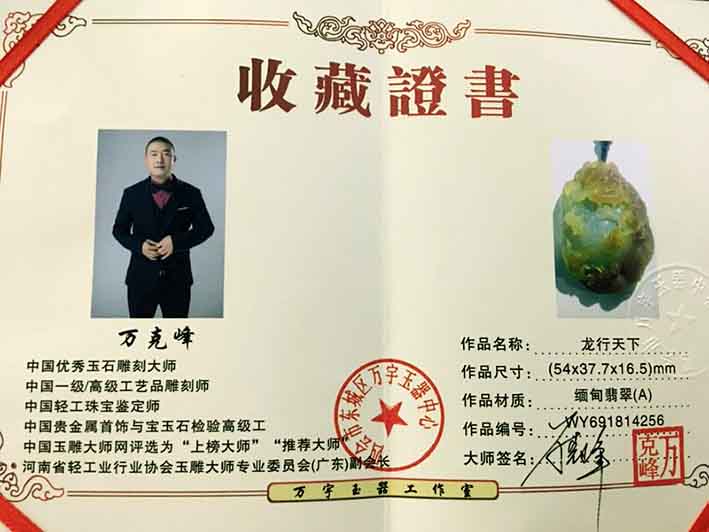 收藏證書
万克峰
中国优秀玉石雕刻大师
中国一级/高级工艺品雕刻师
中国轻工珠宝鉴定师
中国贵金属首饰与宝玉石检验高级工
中国玉雕大师网评选为“上榜大师”“推荐大师”
河南省轻工业行业协会玉雕大师专业委员会(广东)副会长
会市东城区万宇玉器中心
作品名称: 龙行天下
作品尺寸: (54x37.7x16.5)mm
作品材质: 缅甸翡翠(A)
作品编号: WY691814256
大师签名: 万克峰
万克峰
万宇玉器工作室